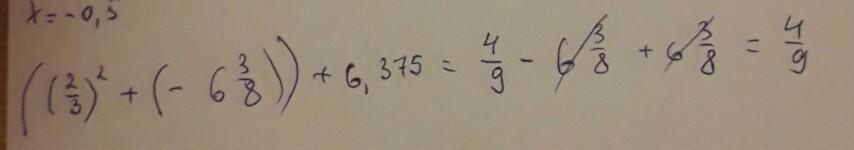 x = -0,5
((2/3)² + (- 6 3/8)) + 6,375 = 4/9 - 6 3/8 + 6 3/8 = 4/9